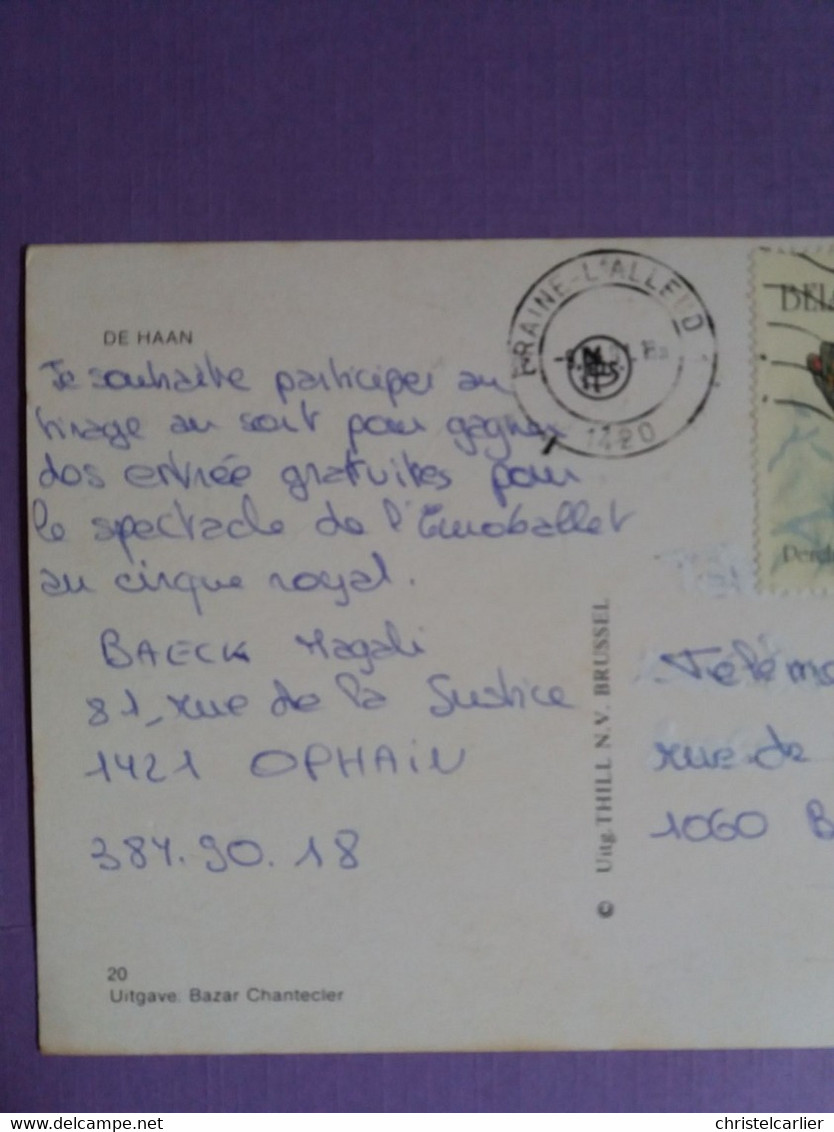 DE HAAN
BRAINE-L'ALLEUD
1420
BELG
Perd
Je souhaite participer au
tirage au sort pour gagner
dos entrée gratuites pour
le spectacle de l'Emoballet
au cirque royal.
BAECK Magali
81, rue de la Justice
1421 OPHAIN
384.90.18
Télémo
rue de
1060 B
© Uitg. THILL N.V. BRUSSEL
20
Uitgave: Bazar Chantecler
delcampe.net
christelcarlier